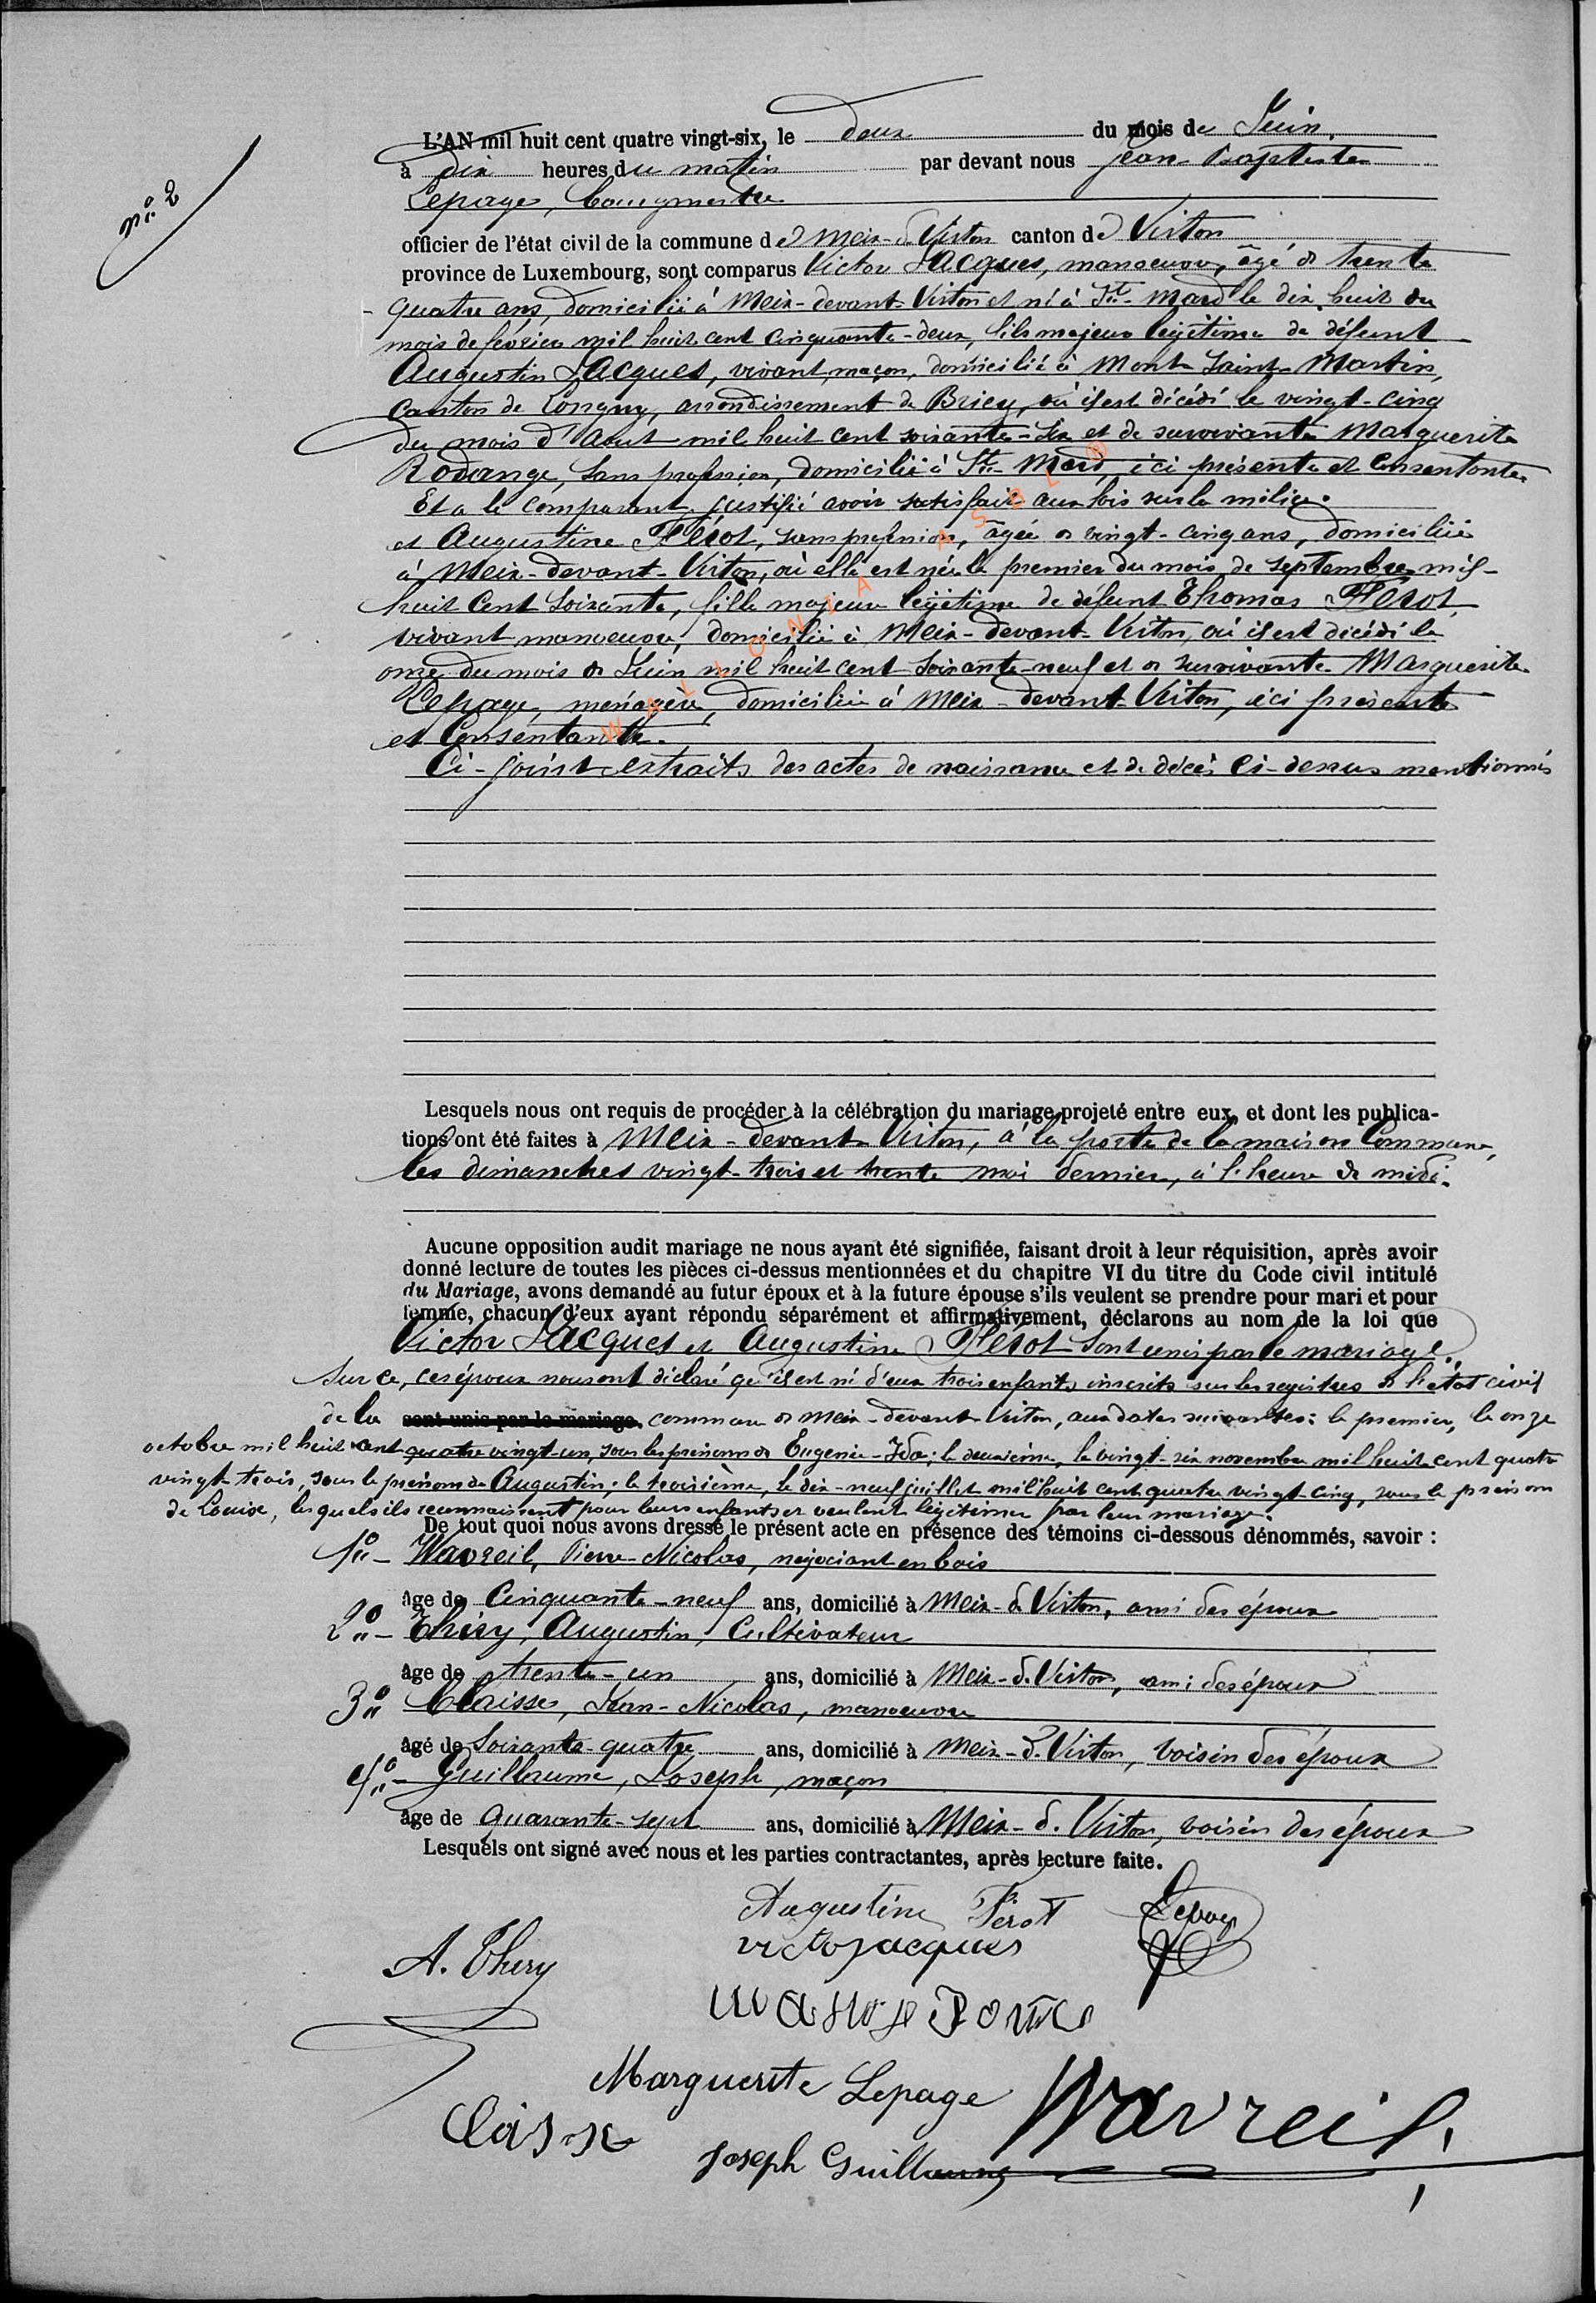 N° 2
L'AN mil huit cent quatre vingt-six, le deux du mois de Juin,
à dix heures du matin par devant nous Jean-Baptiste
Lepage, bourgmestre
officier de l'état civil de la commune de Meix-d-Virton canton de Virton
province de Luxembourg, sont comparus Victor Jacques, manoeuvre, âgé de trente
quatre ans, domicilié à Meix-devant-Virton et né à St-Mard le dix huit du
mois de février mil huit cent cinquante-deux, fils majeur légitime de défunt
Augustin Jacques, vivant maçon, domicilié à Mont Saint Martin,
Canton de Longwy, arrondissement de Briey, où il est décédé le vingt-cinq
du mois d'Août mil huit cent soixante-six et de survivante Marguerite
Rodange, sans profession, domicilié à St-Mard, ici présente et consentante
Et a le comparant justifié avoir satisfait aux lois sur la milice.
et Augustine Férot, sans profession, âgée de vingt-cinq ans, domiciliée
à Meix-devant-Virton, où elle est née le premier du mois de septembre mil-
huit cent soixante, fille majeure légitime de défunt Thomas Férot,
vivant manoeuvre, domicilié à Meix-devant-Virton, où il est décédé le
onze du mois de Juin mil huit cent soixante-neuf et de survivante Marguerite
Lepage, ménagère, domiciliée à Meix-devant-Virton, ici présente
et Consentante.
Ci-joint extraits des actes de naissance et de décès ci-dessus mentionnés
WALLONIA ASBL ®
Lesquels nous ont requis de procéder à la célébration du mariage projeté entre eux, et dont les publica-
tions ont été faites à Meix-devant Virton, à la porte de la maison Commune,
les dimanches vingt-trois et trente mai dernier, à l'heure de midi.
Aucune opposition audit mariage ne nous ayant été signifiée, faisant droit à leur réquisition, après avoir
donné lecture de toutes les pièces ci-dessus mentionnées et du chapitre VI du titre du Code civil intitulé
du Mariage, avons demandé au futur époux et à la future épouse s'ils veulent se prendre pour mari et pour
femme, chacun d'eux ayant répondu séparément et affirmativement, déclarons au nom de la loi que
Victor Jacques et Augustine Férot sont unis par le mariage.
Sur ce, ces époux nous ont déclaré qu'il est né d'eux trois enfants inscrits sur les registres de l'état civil
de la sont unis par le mariage. commune de Meix-devant Virton, aux dates suivantes: le premier, le onze
octobre mil huit cent quatre vingt-un, sous les prénoms de Eugénie-Ida; le deuxième, le vingt-six novembre mil huit cent quatre
vingt trois, sous le prénom de Augustin; le troisième, le dix-neuf juillet mil huit cent quatre vingt-cinq, sous le prénom
de Louise, lesquels ils reconnaissent pour leurs enfants et veulent légitimer par leur mariage.
De tout quoi nous avons dressé le présent acte en présence des témoins ci-dessous dénommés, savoir :
1° - Wavreil, Pierre-Nicolas, négociant en bois
âge de Cinquante-neuf ans, domicilié à Meix-d-Virton, ami des époux
2° - Thiry, Augustin, Cultivateur
âge de trente-un ans, domicilié à Meix-d-Virton, ami des époux
3° Claisse, Jean-Nicolas, manoeuvre
âgé de Soixante-quatre ans, domicilié à Meix-d-Virton, voisin des époux
4° - Guillaume, Joseph, maçon
âge de quarante-sept ans, domicilié à Meix-d. Virton, voisin des époux
Lesquels ont signé avec nous et les parties contractantes, après lecture faite.
Augustine Férot Lepage
victor jacques
A. Thiry
Marguerite Lepage
Wavreil
Claisse
Joseph Guillaume